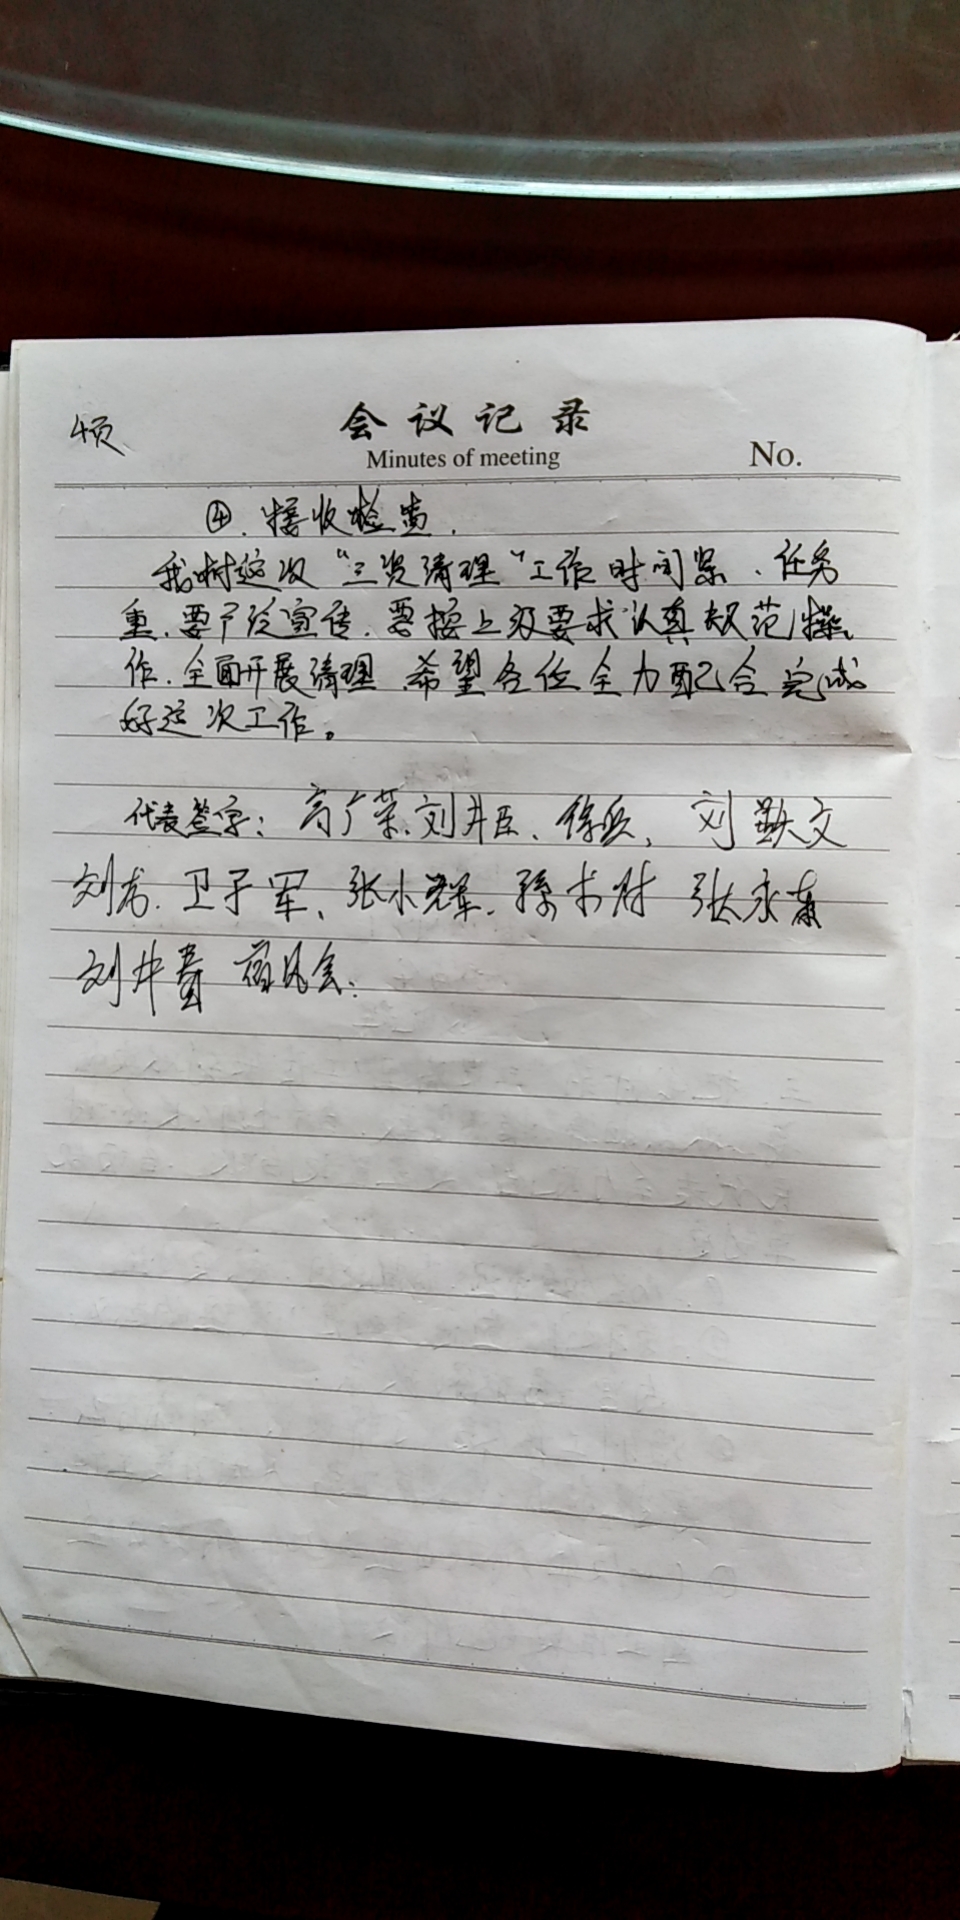 4页
会议记录
Minutes of meeting
No.
④.接收检查.
我村这次“三资清理”工作时间紧、任务
重、要广泛宣传、要按上级要求认真规范操
作、全面开展清理、希望各位全力配合完成
好这次工作。
代表签字：高广荣、刘井臣、徐兵、刘文
刘龙、卫子军、张小辉、孙术财 张永
刘井 凤会